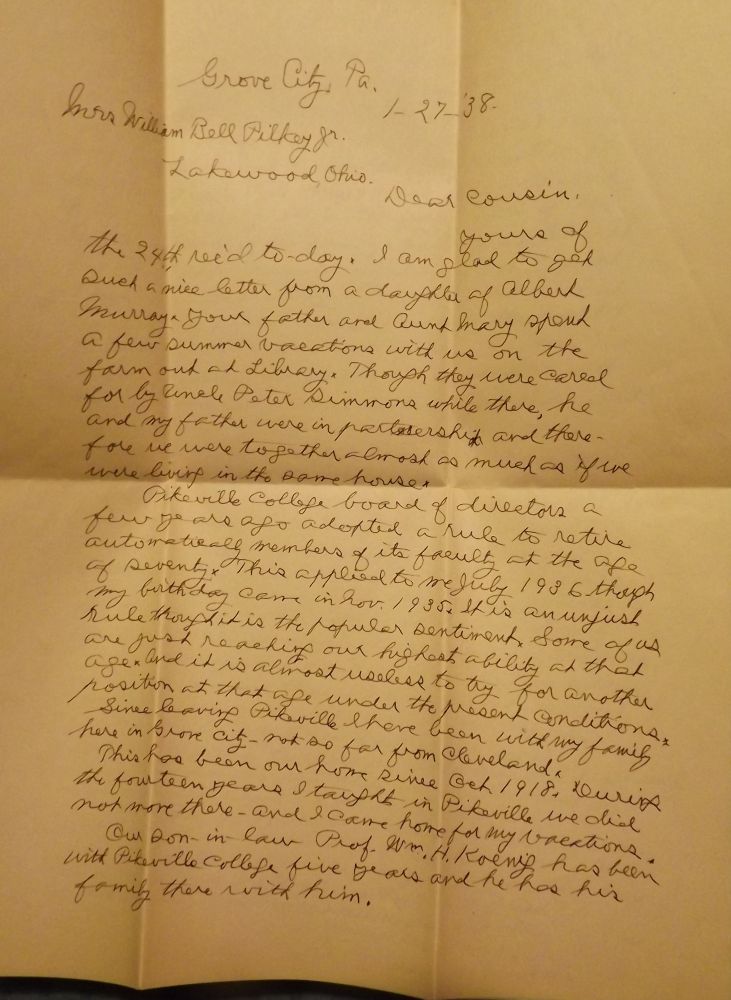 Grove City, Pa.
1-27-'38.
Mrs William Bell Pilkey Jr.
Lakewood, Ohio.
Dear Cousin,
yours of
the 24th rec'd to-day. I am glad to get
such a nice letter from a daughter of Albert
Murray. Your father and Aunt Mary spent
a few summer vacations with us on the
farm out at Library. Though they were cared
for by Uncle Peter Simmons while there, he
and my father were in partnership and there-
fore we were together almost as much as if we
were living in the same house.
Pikeville College board of directors a
few years ago adopted a rule to retire
automatically members of its faculty at the age
of seventy. This applied to me July 1936 though
my birthday came in Nov. 1935. It is an unjust
rule though it is the popular sentiment. Some of us
are just reaching our highest ability at that
age. And it is almost useless to try for another
position at that age under the present conditions.
Since leaving Pikeville I have been with my family
here in Grove City - not so far from Cleveland.
This has been our home since Oct 1918. During
the fourteen years I taught in Pikeville we did
not move there - and I came home for my vacations.
Our son-in-law Prof. Wm. H. Koenig has been
with Pikeville College five years and he has his
family there with him.